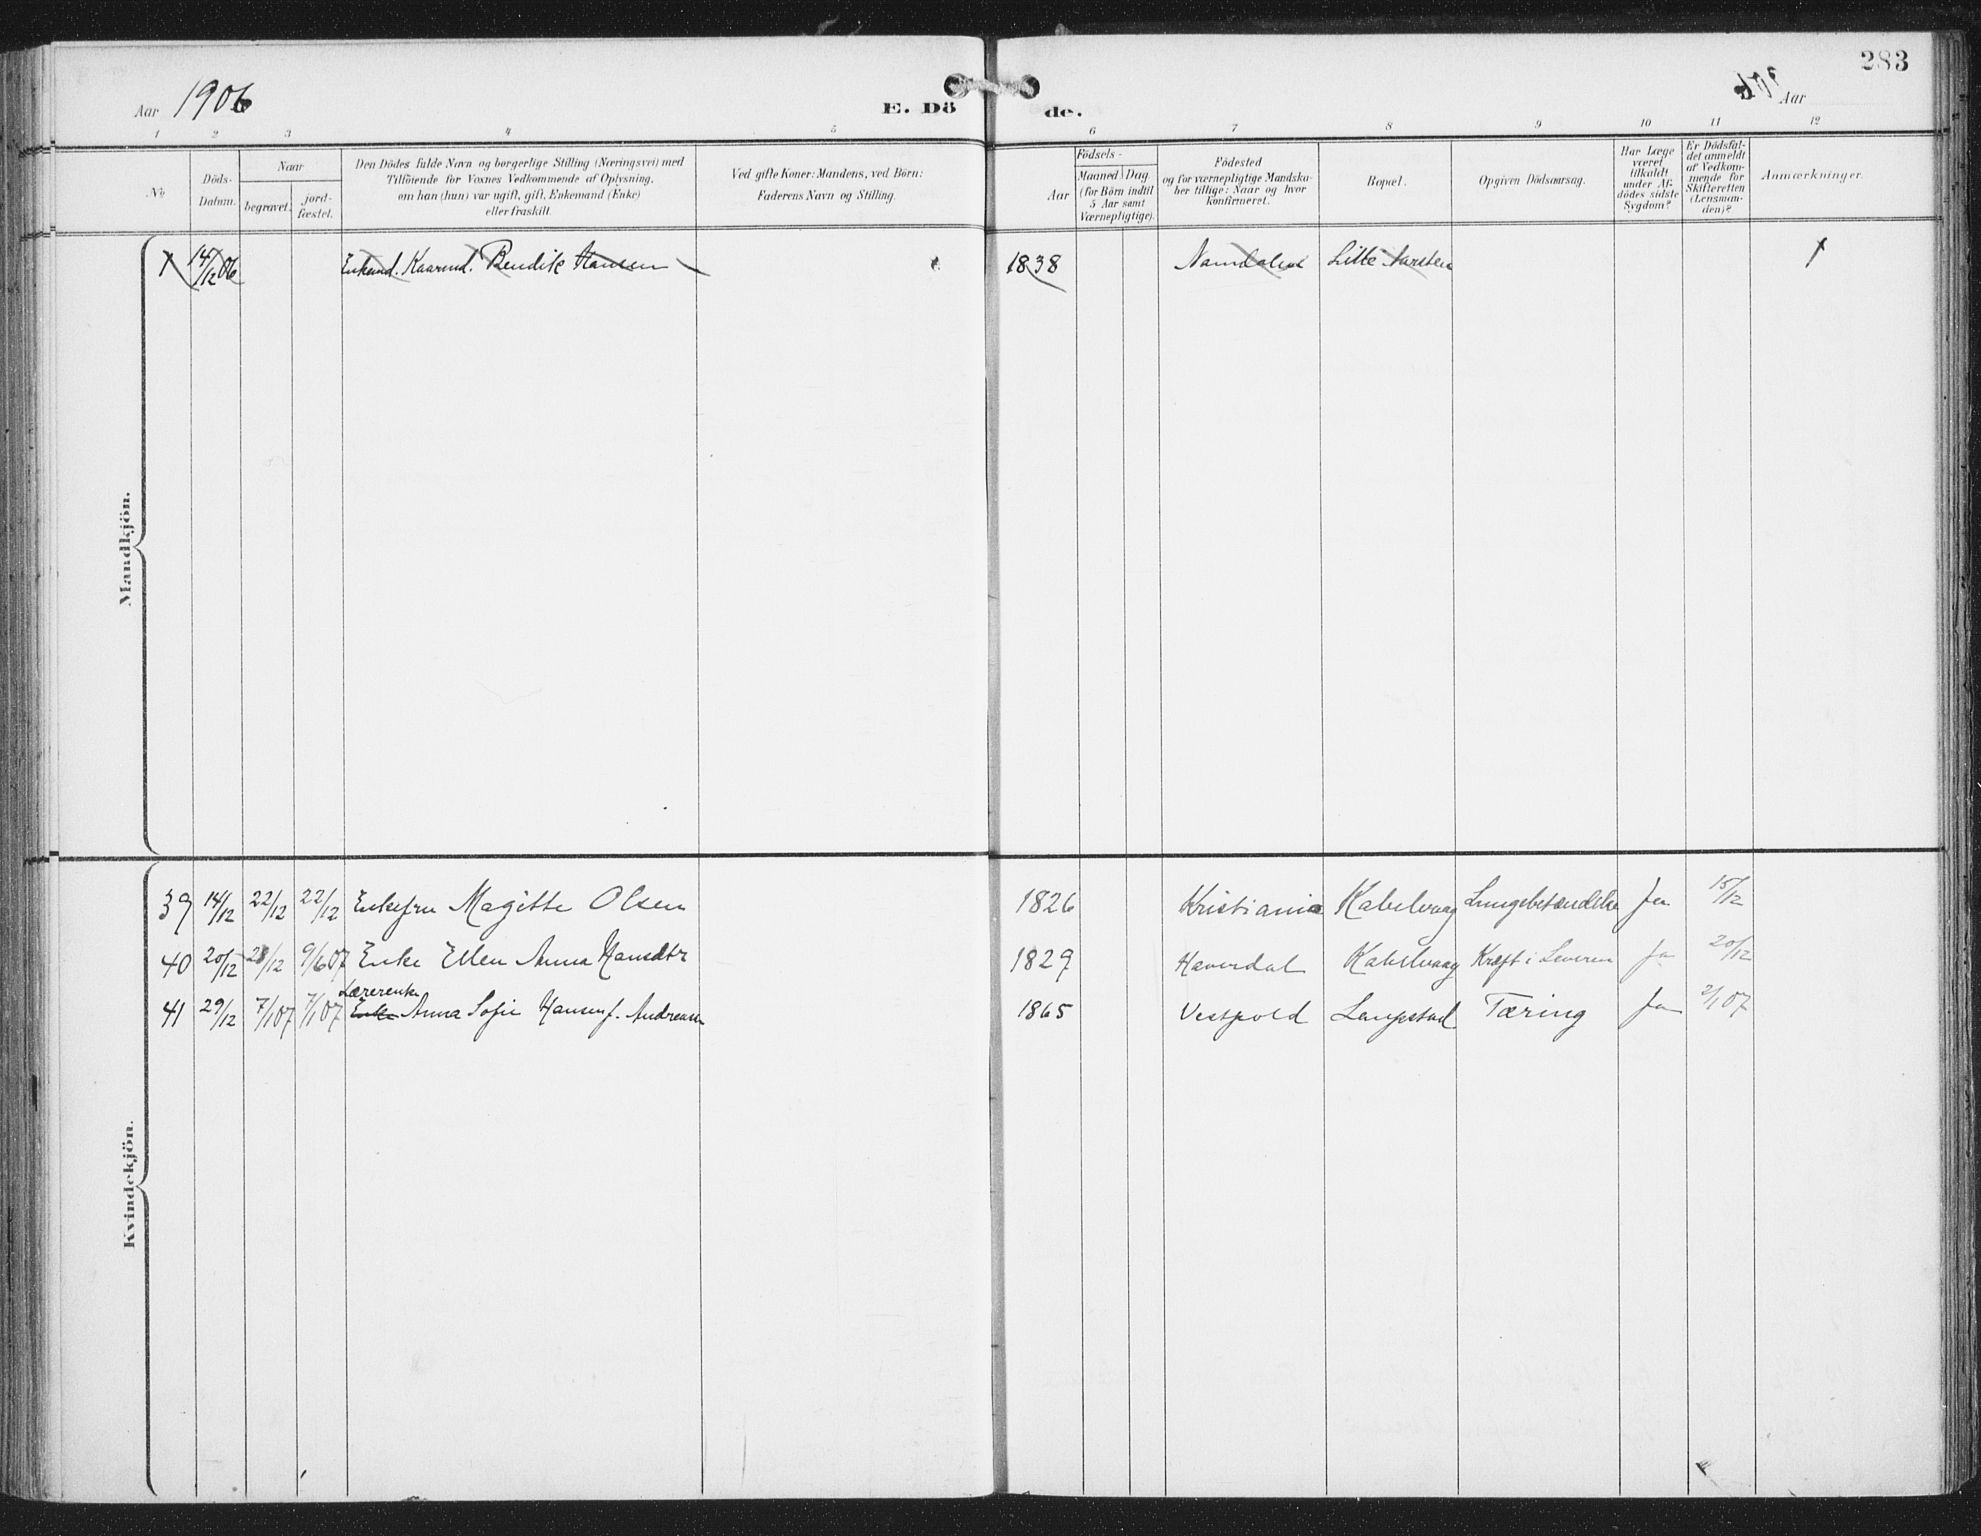 Aar 1906
E. Dö de.
283
Aar
1 2 3 4 5 6 7 8 9 10 11 12
No
Döds-Datum.
Naar
begravet.
jord-fæstet.
Den Dödes fulde Navn og borgerlige Stilling (Næringsvei) med
Tilföiende for Voxnes Vedkommende af Oplysning,
om han (hun) var ugift, gift, Enkemand (Enke)
eller fraskilt.
Ved gifte Koner: Mandens, ved Börn:
Faderens Navn og Stilling.
Födsels-
Aar
Maaned Dag
(for Börn indtil
5 Aar samt
Værnepligtige).
Födested
og for værnepligtige Mandska-
ber tillige: Naar og hvor
konfirmeret.
Bopæl.
Opgiven Dödsaarsag.
Har Læge
været
tilkaldt
under Af-
dödes sidste
Sygdom?
Er Dödsfal-
det anmeldt
af Vedkom-
mende for
Skifteretten
(Lensman-
den)?
Anmærkninger.
Mandkjön.
1 14/12 06 Enkemd. Kaarmd. Bendik Hansen 1838 Namdalen Lille
Kvindekjön.
39 14/12 22/12 22/12 Enkefru Magitte Olsen 1826 Kristiania Kabelvaag Lungebetændelse ja 15/12
40 20/12 28/12 9/6 07 Enke Ellen Anna Hansdtr 1829 Haverdal Kabelvaag Kræft i Leveren ja 20/12
Lærerenke
41 29/12 7/1 07 7/1 07 Enke Anna Sofie Hansen f. Andreasen 1865 Vestpold Laupstad Tæring ja 2/1 07